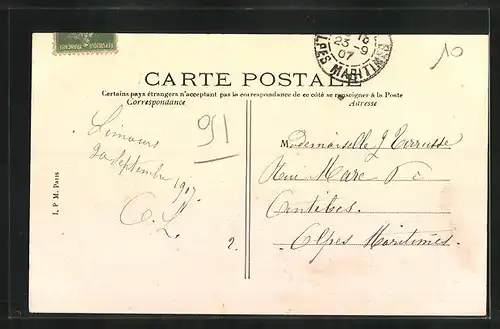 REPUBLIQUE FRANÇAISE
23-9
07
ALPES MARITIMES
10
CARTE POSTALE
Certains pays étrangers n'acceptant pas la correspondance de ce côté se renseigner à la Poste
Correspondance
Adresse
91
Limours
20 Septembre 1907.
C. L.
2.
Mademoiselle J Terrusse
Rue Marc
Antibes.
Alpes Maritimes
I. P. M. Paris